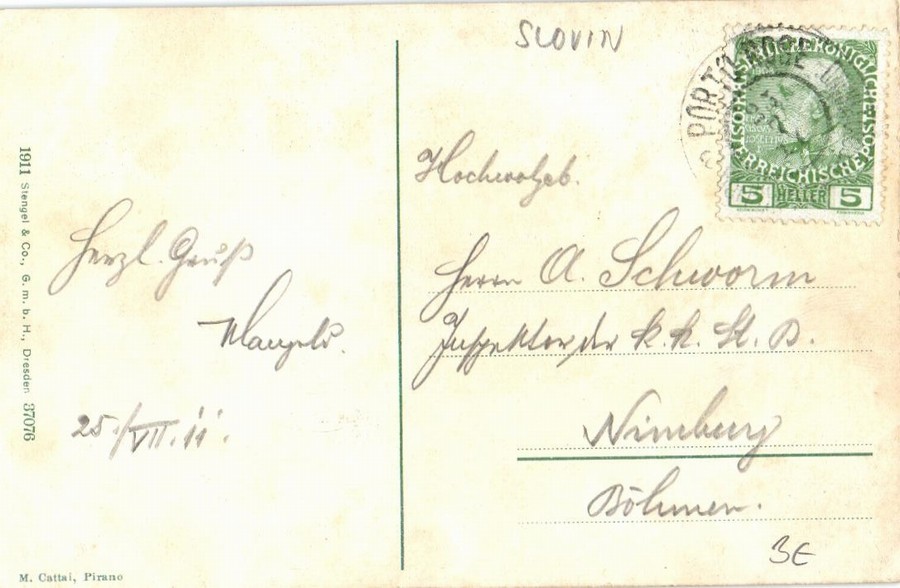 SLOVIN
PORTO ROSE
KAISERLICHE KÖNIGLICHE ÖSTERREICHISCHE POST
5 HELLER 5
Hochwohlgeb.
Herrn A. Schworm
Inspektor der k. k. St. B.
Nimburg
Böhmen.
3E
Herzl. Gruß
25./VII. 11.
1911 Stengel & Co., G. m. b. H., Dresden 37076
M. Cattai, Pirano